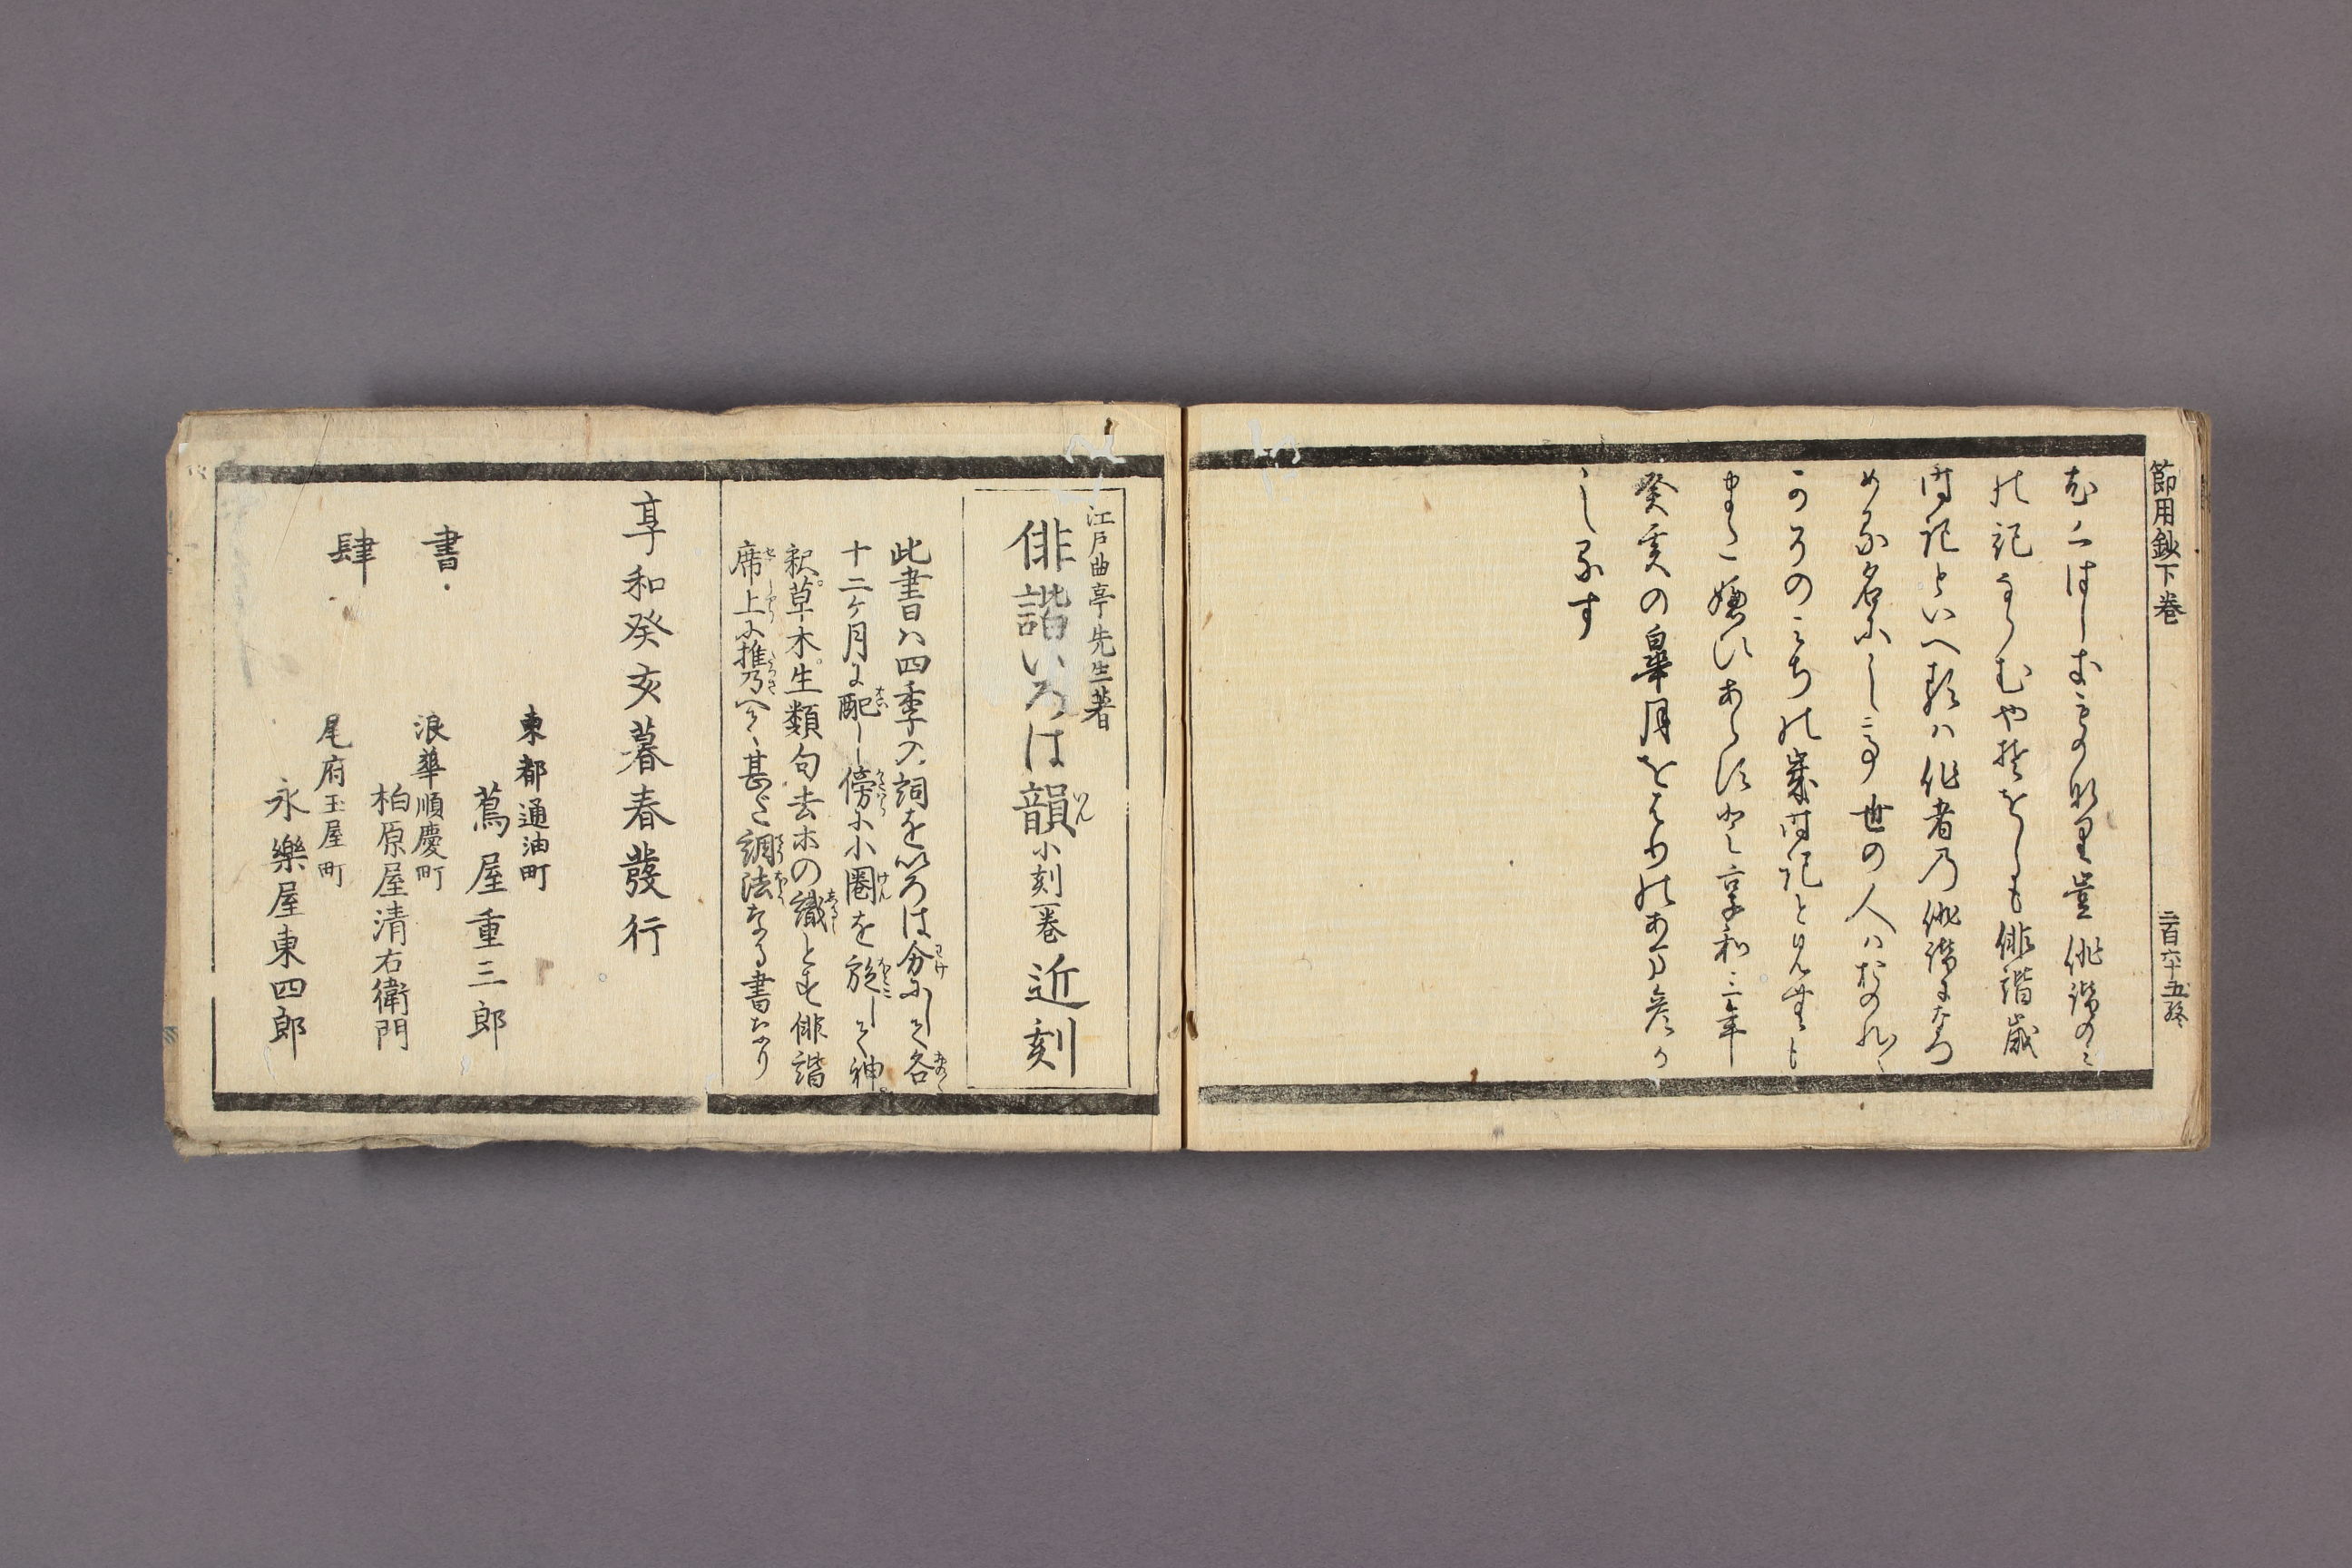 節用鈔下巻
三百六十五終
の記ならむやされとも俳諧歳
時記といへるハ作者乃俳諧になつ
める名にして世の人ハおのれ〳〵
かうのみちの歳時記と見むも
また嫌ひあらすかし享和三年
癸亥の皐月をはりのあるし彦か
しるす
江戸曲亭先生著
俳諧いろは韻小刻一巻近刻
此書ハ四季の詞を以ろは分にして各
十二ケ月に配し傍に小圏を施して神
釈草木生類句去ホの識とす俳諧
席上に携乃へて甚だ調法なる書なり
享和癸亥暮春發行
書肆
東都通油町
蔦屋重三郎
浪華順慶町
柏原屋清右衛門
尾府玉屋町
永樂屋東四郎